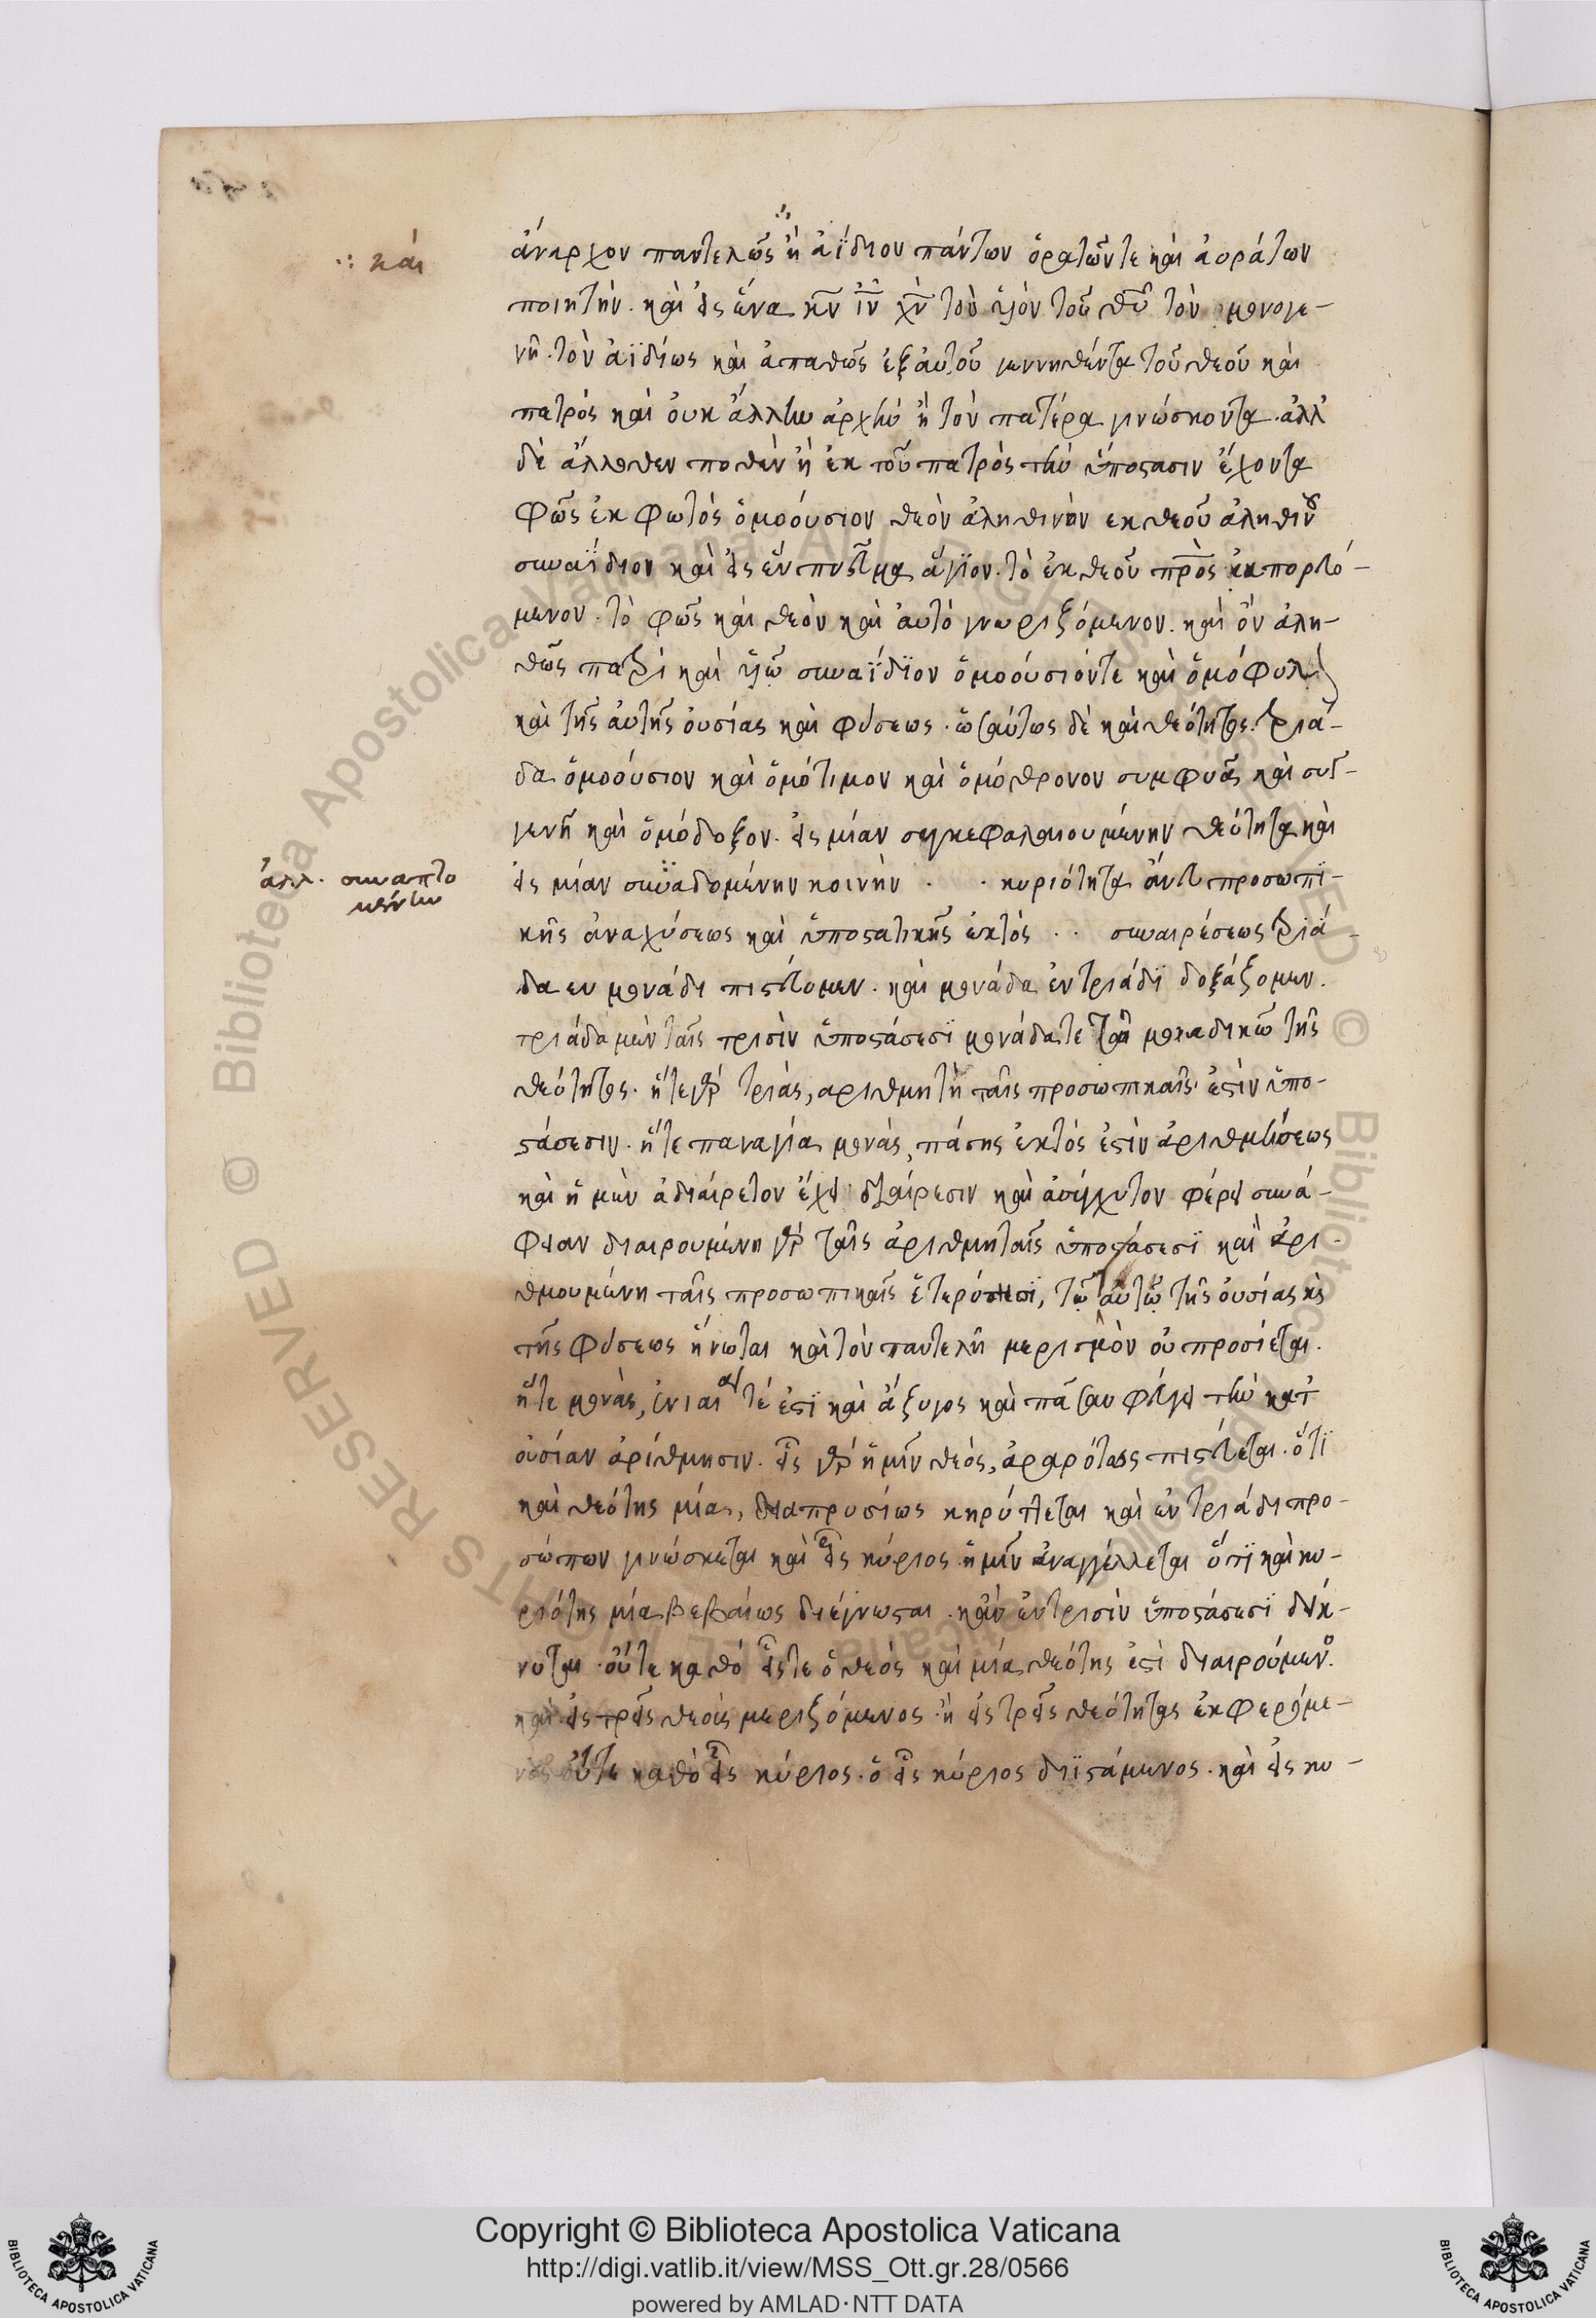 ∴ και
ἄναρχον παντελῶς ἢ ἀΐδιον πάντων ὁρατῶντε καὶ ἀοράτων
ποιητήν. καὶ εἰς ἕνα κ̅ν̅ ι̅ν̅ χ̅ν̅ τὸν υἱὸν τοῦ θ̅υ̅ τὸν μονογε-
νῆ. τὸν ἀϊδίως καὶ ἀπαθῶς ἐξ αὐτοῦ γεννηθέντα τοῦ θεοῦ καὶ
πατρός καὶ οὐκ ἄλλην ἀρχὴν ἢ τὸν πατέρα γινώσκοντα. ἀλλ
δὲ ἄλλοθεν ποθὲν ἢ ἐκ τοῦ πατρὸς τὴν ὑπόστασιν ἔχοντα
φῶς ἐκ φωτὸς ὁμοούσιον θεὸν ἀληθινὸν εκ θεοῦ ἀληθινοῦ
συναΐδιον καὶ εἰς ἓν πνεῦμα ἅγϊον. τὸ ἐκ θεοῦ π̅ρ̅ὸς ἐκπορευό-
μενον. τὸ φῶς καὶ θεὸν καὶ αὐτό γνωριζόμενον. καὶ ὂν ἀλη-
θῶς πατρὶ καὶ υἱῷ συναΐδϊον ὁμοούσιόντε καὶ ὁμόφυλ
καὶ τῆς αὐτῆς οὐσίας καὶ φύσεως. ὡσαύτως δὲ καὶ θεότητος. τριά-
δα ὁμοούσιον καὶ ὁμότιμον καὶ ὁμόθρονον συμφυᾶ καὶ συγ-
γενῆ καὶ ὁμόδοξον. εἰς μίαν συγκεφαλαιουμένην θεότητα καὶ
ἀλλ. συναπτο
μένην
εἰς μίαν συναδομένην κοινὴν . . κυριότητα ἄνευ προσωπϊ-
κῆς ἀναχύσεως καὶ ὑποστατικῆς ἐκτὸς . . συναιρέσεως τριά-
δα εν μονάδι πιστεύομεν. καὶ μονάδα ἐν τριάδϊ δοξάζομεν.
τριάδα μὲν ταῖς τρισὶν ὑποστάσεσϊ μονάδα τε τῶ μοναδικῶ τῆς
θεότητος. ἥτε γὰρ τριὰς, αριθμητὴ ταῖς προσωπικαῖς ἐστὶν ὑπο-
στάσεσιν. ἥτε παναγία μονὰς, πάσης ἐκτός ἐστὶν ἀριθμήσεως
καὶ ἡ μὲν ἀδιαίρετον ἔχει διαίρεσιν καὶ ἀσύγχυτον φέρει συνά-
φειαν διαιρουμένη γὰρ ταῖς ἀριθμηταῖς ὑποστάσεσϊ καὶ ἀρι-
θμουμένη ταῖς προσωπικαῖς ἑτερότησϊ, τῷ αὐτῷ τῆς οὐσίας κὶ
τῆς φύσεως ἥνωται καὶ τὸν παντελῆ μερισμὸν οὐ προσίεται.
ἥτε μονὰς, ἑνιαία τέ ἐστϊ καὶ ἄζυγος καὶ πᾶσαν φεύγει τὴν κατ
οὐσίαν ἀρίθμησιν. εἷς γὰρ ἡμῖν θεὸς, ἀραρότως πιστεύεται. ὅτϊ
καὶ θεότης μία, διαπρυσίως κηρύττεται καὶ ἐν τριάδι προ-
σώπων γινώσκεται καὶ εἷς κύριος ἡμῖν ἀναγγέλλεται ὅτϊ καὶ κυ-
ριότης μία βεβαίως διέγνωσται. κἂν ἐν τρισὶν ὑποστάσεσϊ δείκ-
νυται. οὔτε καθό εἷς τε ὁ θεὸς καὶ μία θεότης ἐστὶ διαιρούμενο.
καὶ εἰς τρεῖς θεοὺς μεριζόμενος. ἢ εἰς τρεῖς θεότητας ἐκφερόμε-
νος οὔτε καθὸ εἷς κύριος. ὁ εἷς κύριος διϊστάμενος. καὶ εἰς κυ-
© Biblioteca Apostolica Vaticana ALL RIGHTS RESERVED
Copyright © Biblioteca Apostolica Vaticana
http://digi.vatlib.it/view/MSS_Ott.gr.28/0566
powered by AMLAD·NTT DATA
BIBLIOTECA APOSTOLICA VATICANA
BIBLIOTECA APOSTOLICA VATICANA